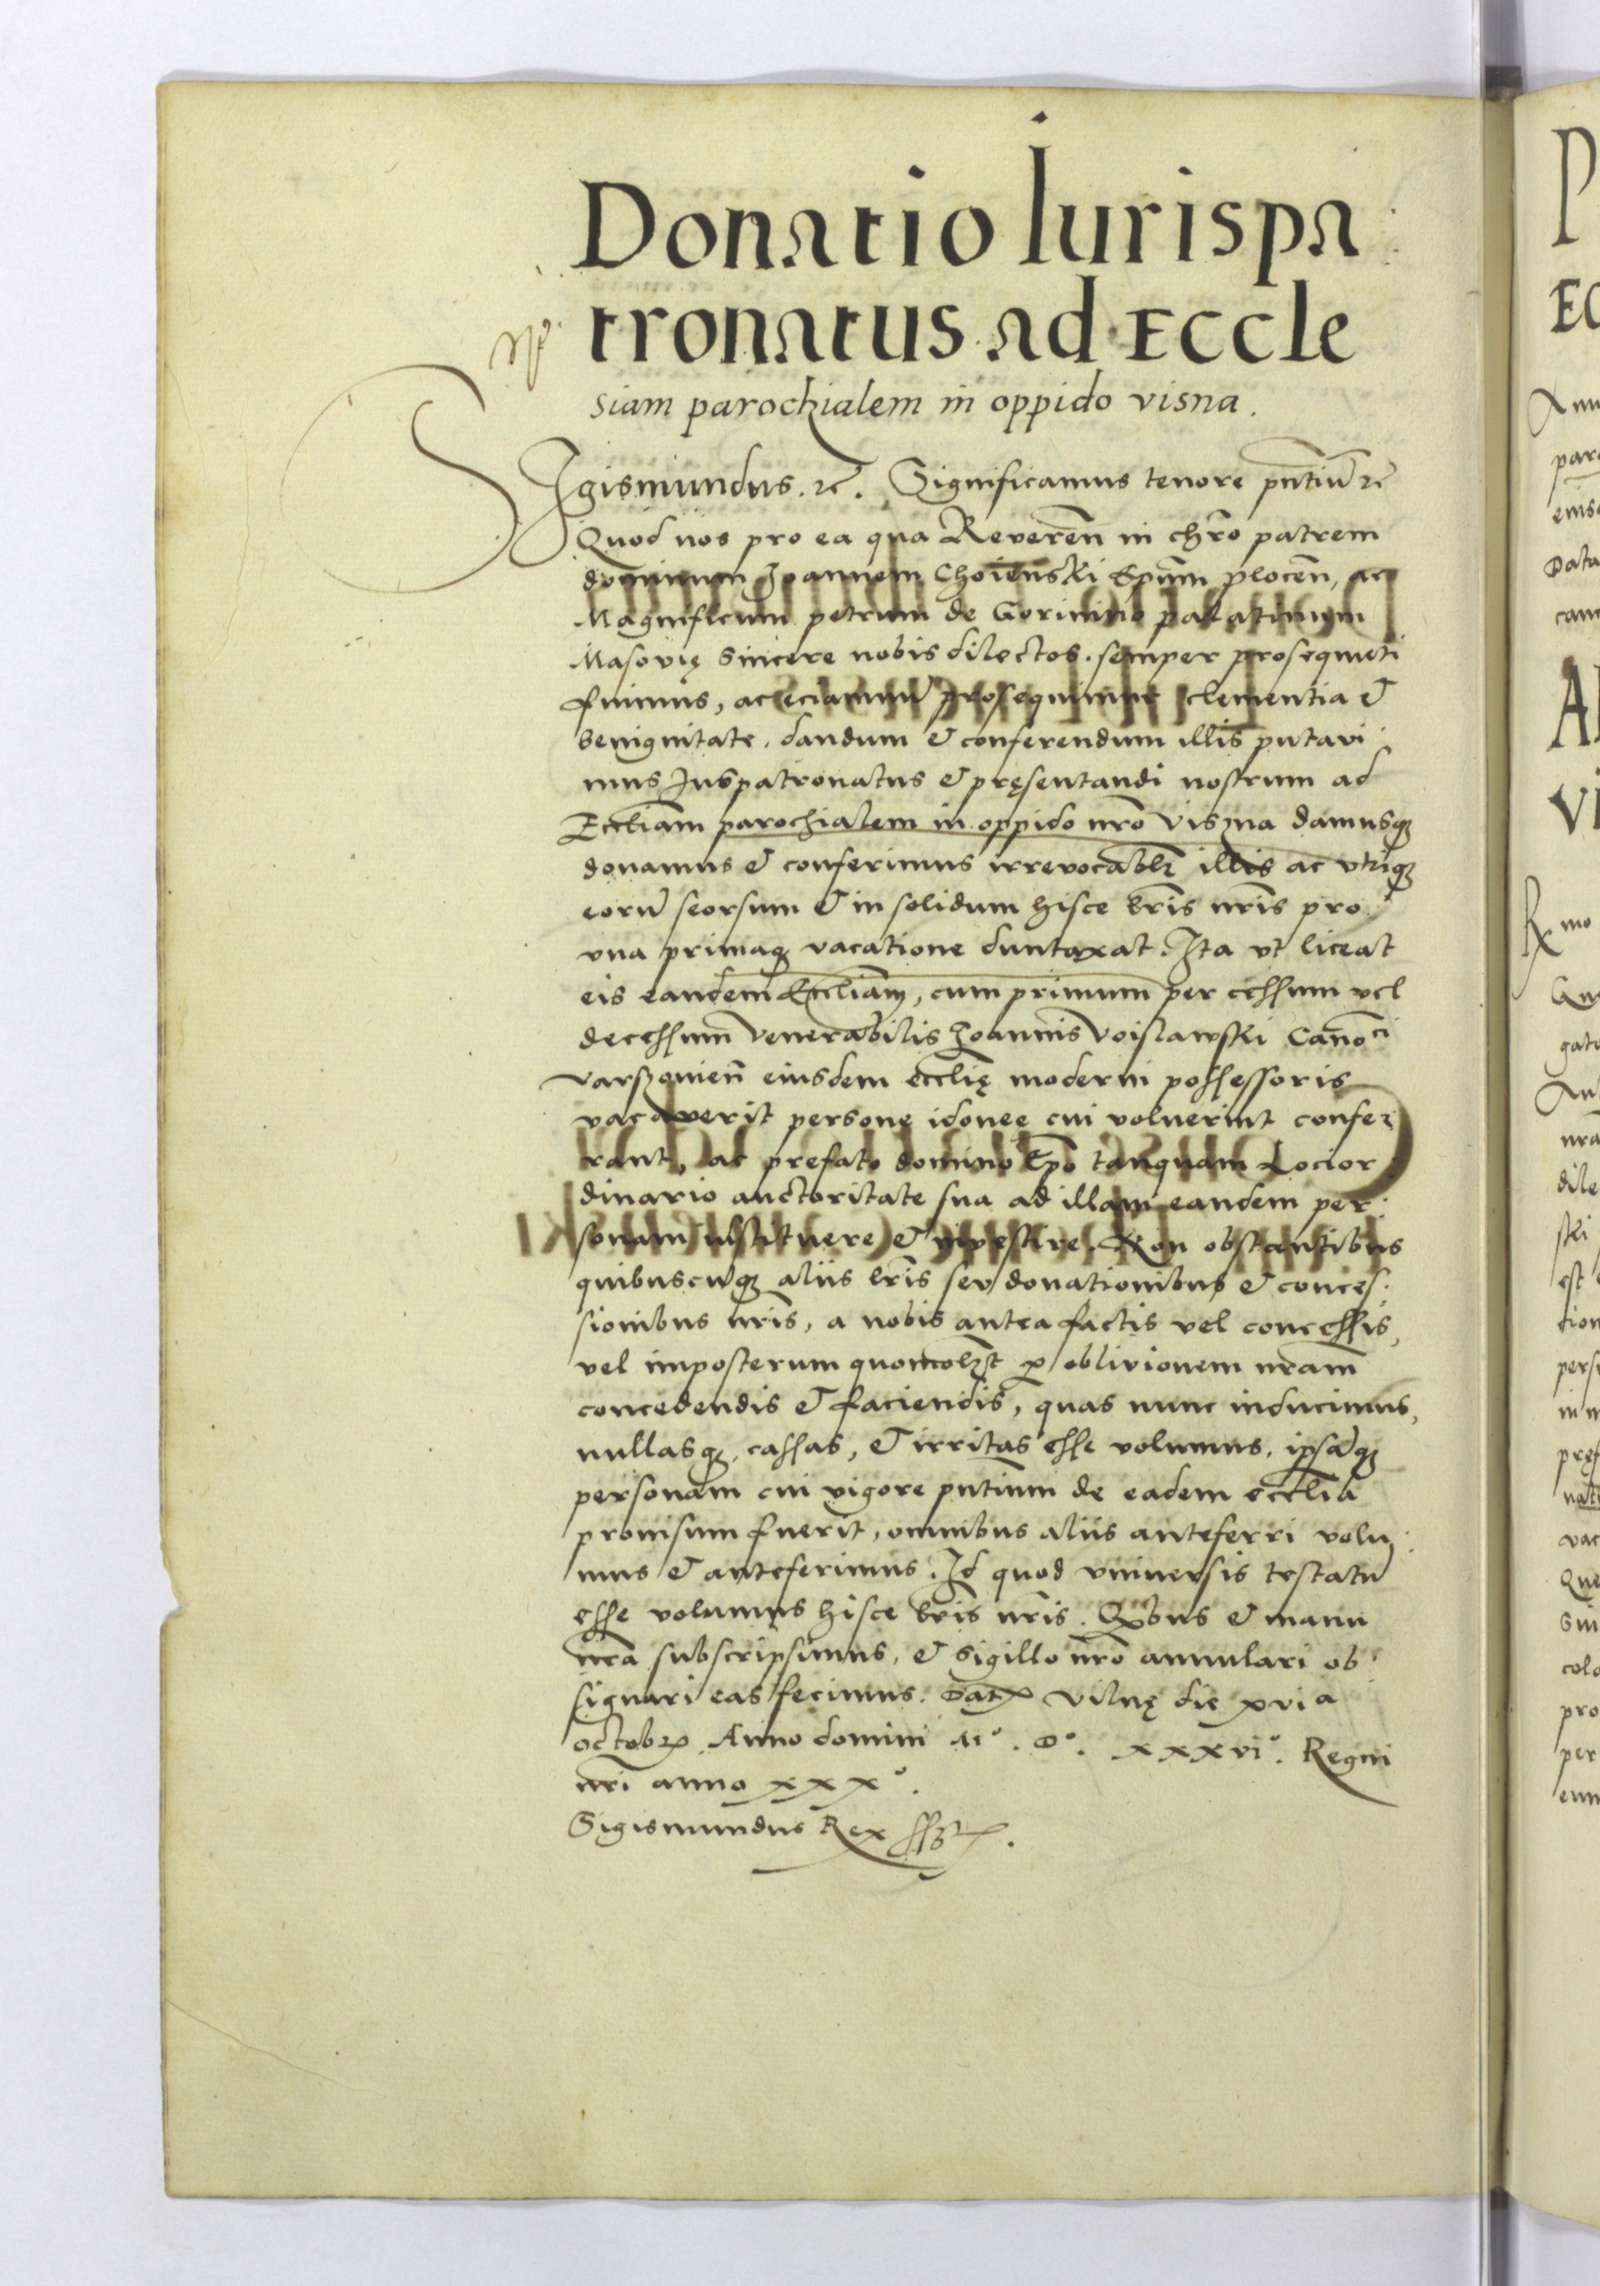 Donatio Iurispa
tronatus ad Eccle
siam parochialem in oppido visna.
SIgismundus. &c. Significamus tenore pñtiũ &c
Quod nos pro ea qua Reveren̄ in chr̄o patrem
dominum Joannem Choienski Ep̄um plocen̄, ac
Magnificum petrum de Gorinino palatinum
Masovię sincere nobis dilectos. semper prosequuti
fuimus, ac eciamnũ prosequimur clementia &
benignitate, dandum & conferendum illis putavi
mus Juspatronatus & pręsentandi nostrum ad
Eccl̄iam parochialem in oppido nr̄o Viszna damusq3
donamus & conferimus irrevocabl̄r illis ac utriq3
eorũ seorsum & in solidum hisce l̄ris nr̄is pro
una primaq3 vacatione duntaxat. Ita ut liceat
eis eandem Eccl̄iam, cum primum per cessum vel
decessum Venerabilis Joannis Voislawski Canoci
varszovien̄ eiusdem eccl̄ię moderni possessoris
vacaverit personę idonee cui voluerint confer
rant, ac prefato domino Ep̄o tanquam Locior
dinario auctoritate sua ad illam eandem per
sonam instituere & investire. Non obstantibus
quibuscũq3 aliis l̄ris seu donationibus & conces
sionibus nr̄is, a nobis antea factis vel concessis,
vel imposterum p oblivionem nr̄am
concedendis & faciendis, quas nunc inducimus,
nullasq3, cassas, & irritas esse volumus. ipsãq3
personam cui vigore pn̄tium de eadem eccl̄ia
provisum fuerit, omnibus aliis anteferri volu
mus & anteferimus. Id quod universis testatũ
esse volumus hisce l̄ris nr̄is. Qbus & manu
nr̄a subscripsimus, & sigillo nr̄o annulari ob
signari eas fecimus. Dat Vilnę die xvi a
octobr Anno domini M°. D°. xxxvi°. Regni
nr̄i anno xxx°.
Sigismundus Rex sst.